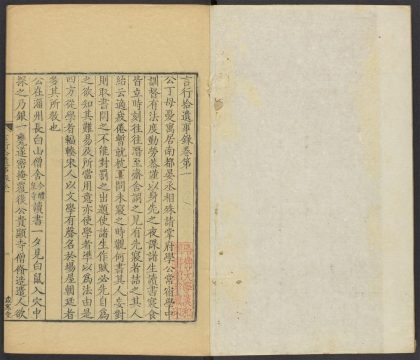 言行拾遺事錄卷第一
公丁母憂寓居南都晏丞相殊請掌府學公常宿學中
訓督有法度勤勞恭謹以身先之夜課諸生讀書寢食
皆立時刻往往潛至齋舍詗之見有先寢者詰之其人
紿云適疲倦暫就枕耳問未寢之時觀何書其人妄對
則取書問之不能對罰之出題使諸生作賦必先自爲
之欲知其難易及所當用意亦使學者準以爲法由是
四方從學者輻輳宋人以文學有聲名於場屋朝廷者
多其所教也
公在淄州長白山僧舍讀書一夕見白鼠入穴中
探之乃銀一甕遂密掩覆後公貴顯寺僧脩造遣人欲